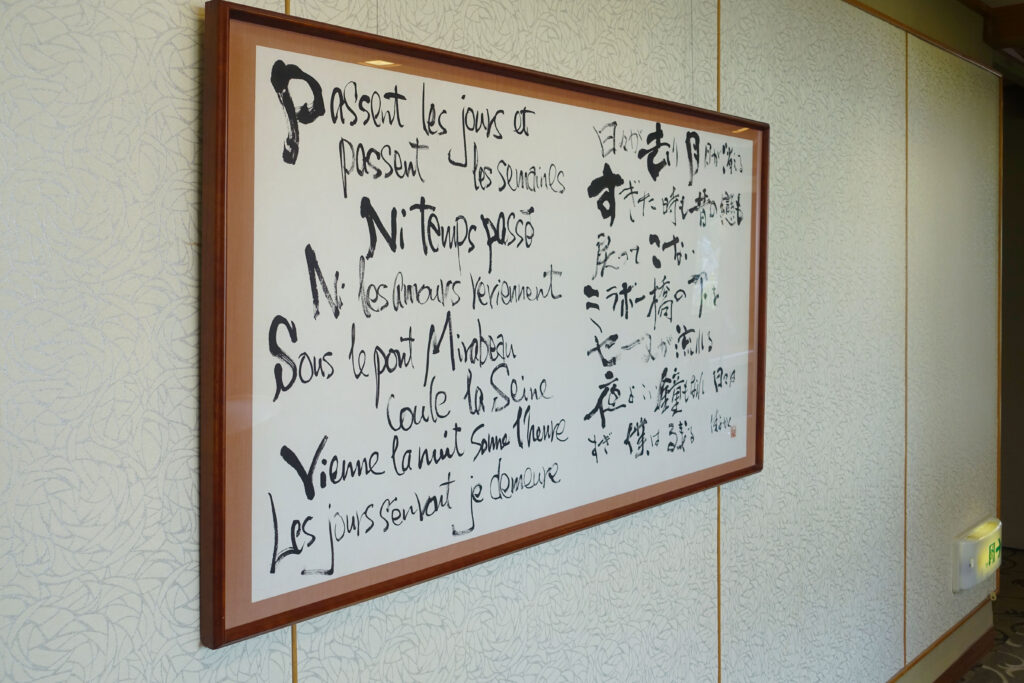 Passent les jours et
passent les semaines
Ni temps passé
Ni les amours reviennent
Sous le pont Mirabeau
coule la Seine
Vienne la nuit sonne l'heure
Les jours s'en vont je demeure
日々が去り 月日が流れる
すぎた 時も 昔の 戀も
戻って こない
ミラボー橋の下を
セーヌが流れる
夜よこい 鐘も 日々は
すぎ 僕は 残る